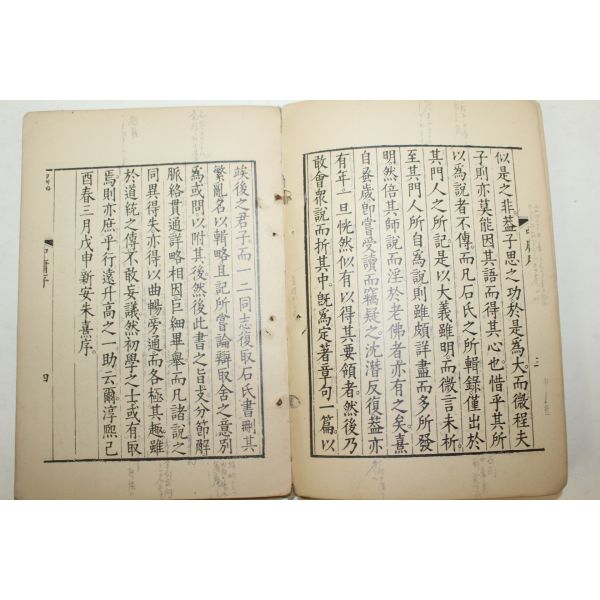 三
似是之非。蓋子思之功於是爲大。而微程夫
子則亦莫能因其語而得其心也。惜乎其所
以爲說者不傳。而凡石氏之所輯錄僅出於
其門人之所記。是以大義雖明而微言未析。
至其門人所自爲說則雖頗詳盡而多所發
明然倍其師說而淫於老佛者亦有之矣。熹
自蚤歲卽嘗受讀而竊疑之。沈潛反復蓋亦
有年。一旦恍然似有以得其要領者。然後乃
敢會衆說而折其中。旣爲定著章句一篇。以
竢後之君子而一二同志復取石氏書刪其
繁亂名以輯略且記所嘗論辯取舍之意別
爲或問以附其後然後此書之旨支分節解
脈絡貫通詳略相因巨細畢擧而凡諸說之
同異得失亦得以曲暢旁通而各極其趣雖
於道統之傳不敢妄議然初學之士或有取
焉則亦庶乎行遠升高之一助云爾淳熙己
酉春三月戊申新安朱熹序。
中庸序
四